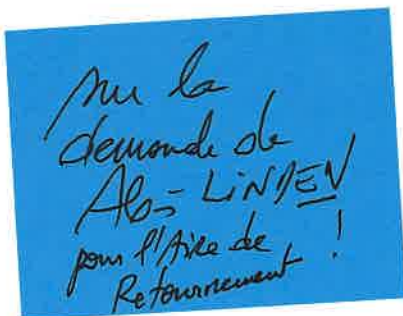 sur la
demande de
Aloïs LINDEN
pour l'Aire de
Retournement !